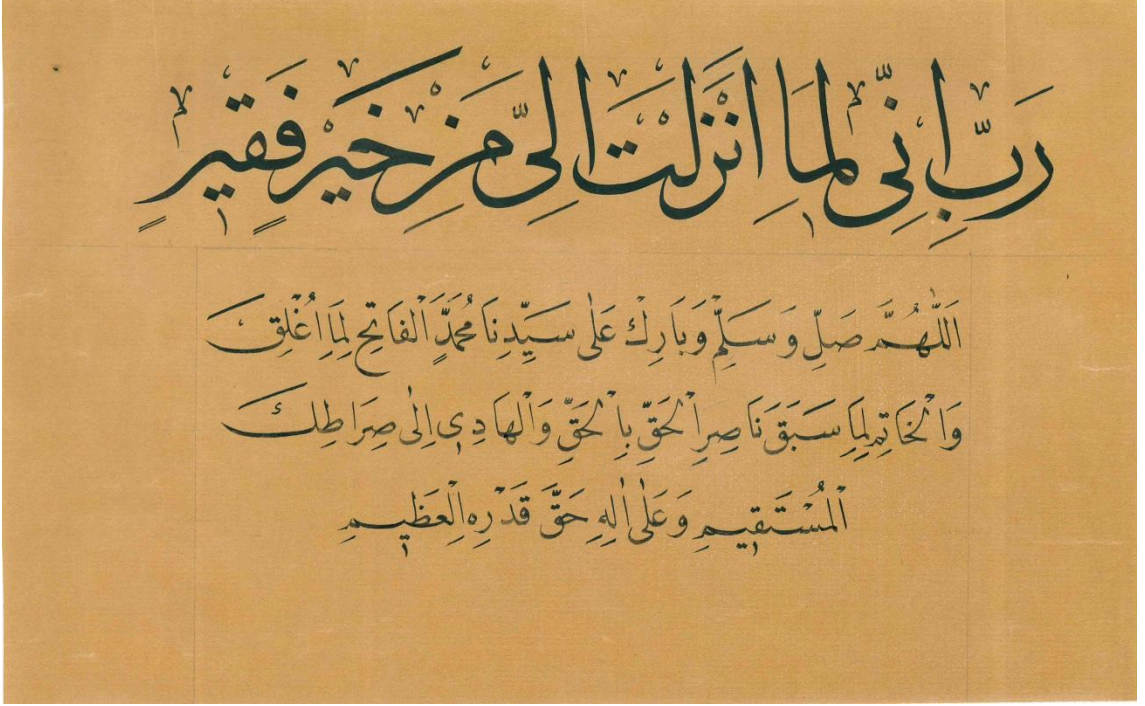 رَبِّ اِنِّي لِمَا اَنْزَلْتَ اِلَيَّ مِنْ خَيْرٍ فَقِيرٍ
اَللّٰهُمَّ صَلِّ وَسَلِّمْ وَبَارِكْ عَلٰى سَيِّدِنَا مُحَمَّدٍ اَلْفَاتِحِ لِمَا اُغْلِقَ
وَالْخَاتِمِ لِمَا سَبَقَ نَاصِرِ الْحَقِّ بِالْحَقِّ وَالْهَادِي اِلٰى صِرَاطِكَ
الْمُسْتَقِيمِ وَعَلٰى اٰلِهِ حَقَّ قَدْرِهِ الْعَظِيمِ